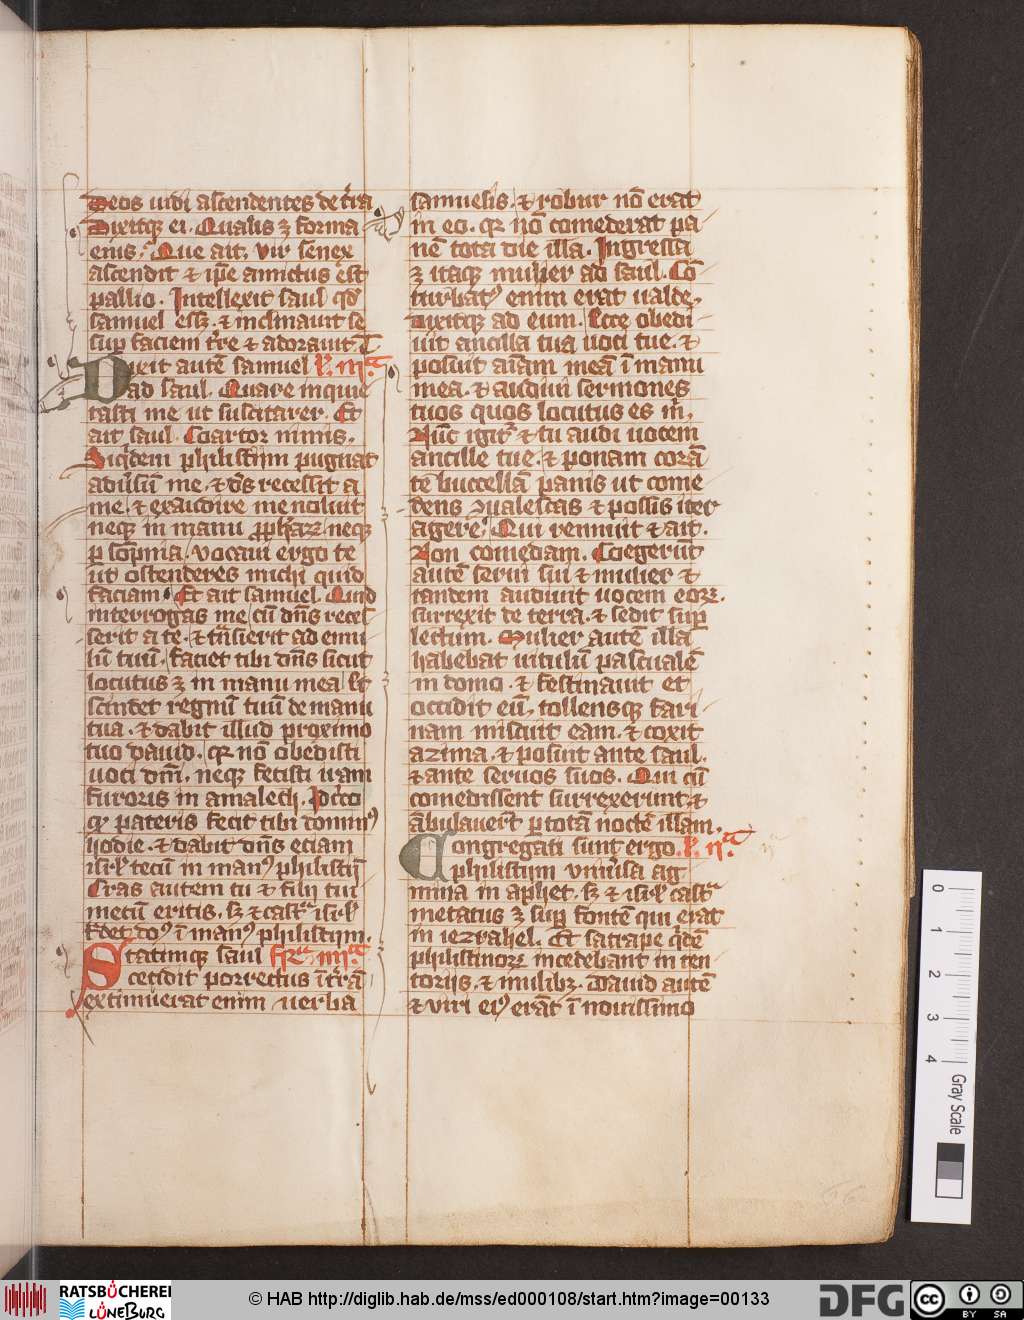 Deos uidi ascendentes de t͛ra
Dixitqꝫ ei. Qualis ÷ forma
eius. Que ait. vir senex
ascendit ⁊ ip̄e amictus est
pallio. Intellexit saul qd̛
samuel ess&. ⁊ inclinauit se
sup̱ faciem t͛re ⁊ adorauit
Dixit autē samuel
ad saul. Quare inquie
tasti me ut suscitarer. Et
ait saul. Coartor nimis.
Siqͥdem philistijm pugnāt
adu͛sū me. ⁊ dꝰs recessit a
me. ⁊ exaudire me noluit
neqꝫ in manu ꝓph̄aꝝ. neqꝫ
ꝑ sōpnia. vocaui ergo te
ut ostenderes michi quid
faciam. Et ait samuel. Quid
interrogas me. cū dn̄s reces
serit a te. ⁊ tn̄sierit ad emu
lū tuū. faciet tibi dn̄s sicut
locutus ÷ in manu mea. &
scindet regnū tuū de manu
tua. ⁊ dabit illud proximo
tuo dauid. qꝛ nō obedisti
uoci dn̄i. neqꝫ fecisti iram
furoris in amalech. Idcͥco
qd̛ pateris fecit tibi dominꝰ
hodie. ⁊ dabit dn̄s etiam
isrl̄ tecū in manꝰ philistij̄
Cras autem tu ⁊ filij tui
mecū eritis. sꝫ ⁊ castͣ isrl̄
t͛det dn̄s ī manꝰ philistijm.
Statimqꝫ saul
cecidit porrectus ī t͛rā
extimuerat enim uerba
samuelis. ⁊ robur nō erat
in eo. qꝛ nō comederat pa
nē tota die illa. Ingressa
÷ itaqꝫ mulier ad saul. Cō
turbatꝰ enim erat ualde.
Dixitqꝫ ad eum. Ecce obedi
uit ancilla tua uoci tue. ⁊
posui aīam meā ī manu
mea. ⁊ audiui sermones
tuos quos locutus es m̄.
Nūc igitᷣ ⁊ tu audi uocem
ancille tue. ⁊ ponam corā
te buccellā panis ut come
dens ꝯualescas ⁊ possis iter
agere. Qui rennuit ⁊ ait.
Non comedam. Coegerūt
autē serui sui ⁊ mulier ⁊
tandem audiuit uocem eoꝝ.
surrexit de terra. ⁊ sedit sup̱
lectum. Mulier autē illa
habebat uitulū pascualē
in domo. ⁊ festinauit et
occidit eū. tollensqꝫ fari
nam miscuit eam. ⁊ coxit
azima. ⁊ posuit ante saul.
⁊ ante seruos suos. Qui cū
comedissent surrexerunt. ⁊
ābulauer̄t ꝑ totā noctē illam.
Congregati sunt ergo.
philistijm uniu͛sa ag
mina in aphec. sꝫ ⁊ isrl̄ castͣ
metatus ÷ sup̱ fontē qui erat
in iezrahel. Et satrape qͥdē
philistinoꝝ incedebant in cen
torijs. ⁊ milibꝫ. Dauid autē
⁊ uiri eiꝰ erāt ī nouissimo
0 1 2 3 4 Gray Scale
RATSBÜCHEREI
LÜNEBURG
© HAB http://diglib.hab.de/mss/ed000108/start.htm?image=00133
DFG
cc BY SA